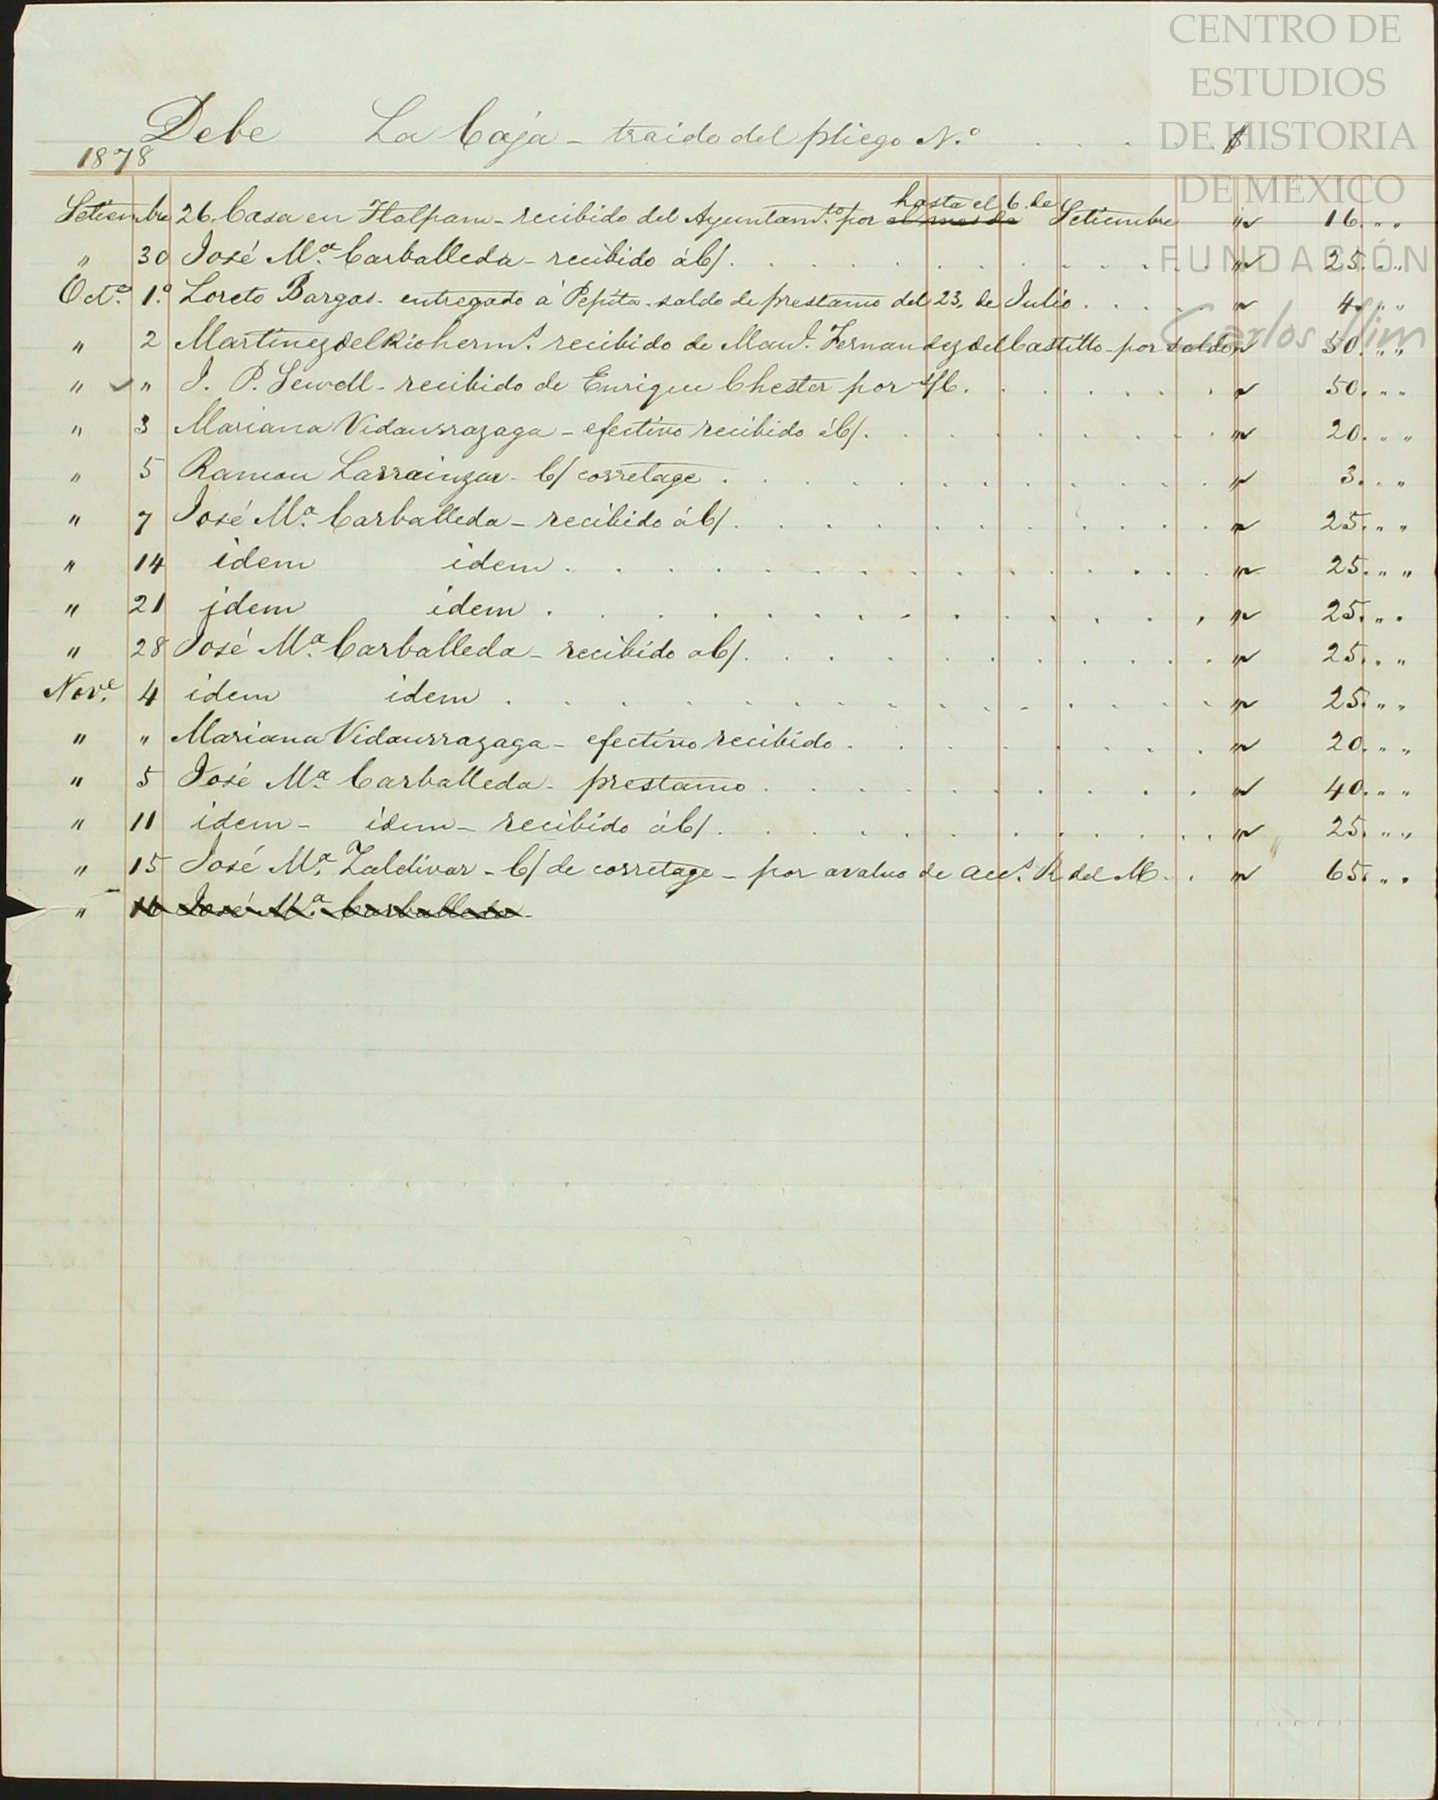 CENTRO DE
ESTUDIOS
DE HISTORIA
DE MÉXICO
FUNDACIÓN
Carlos Slim
Debe La Caja - traido del pliego N.º . . . . . $
1878
hasta el 6. de
Setiembre 26. Casa en Tlalpam - recibido del Ayuntam.to por el mes de Setiembre " 16. " "
" 30 José M.ª Carballeda - recibido á C/ . . . " 25. " "
Oct.e 1.º Loreto Bargas - entregado á Pepita - saldo de prestamo del 23. de Julio . . . " 4. " "
" 2 Martinez del Rio herm.s recibido de Man.l Fernandez del Castillo - por saldo " 50. " "
" " J. P. Sewell - recibido de Enrique Chester por s/c. . . . " 50. " "
" 3 Mariana Vidaurrazaga - efectivo recibido á C/. . . . " 20. " "
" 5 Ramon Larrainzar - C/ corretage . . . " 3. " "
" 7 José M.ª Carballeda - recibido á C/. . . . " 25. " "
" 14 idem idem . . . " 25. " "
" 21 idem idem . . . " 25. " "
" 28 José M.ª Carballeda - recibido a C/. . . . " 25. " "
Nov.e 4 idem idem . . . " 25. " "
" " Mariana Vidaurrazaga - efectivo recibido . . . " 20. " "
" 5 José M.ª Carballeda - prestamo . . . " 40. " "
" 11 idem - idem - recibido á C/. . . . " 25. " "
" 15 José M.ª Zaldivar - C/ de corretage - por avaluo de acc.s R del M. . . " 65. " "
" José M.ª Carballeda -